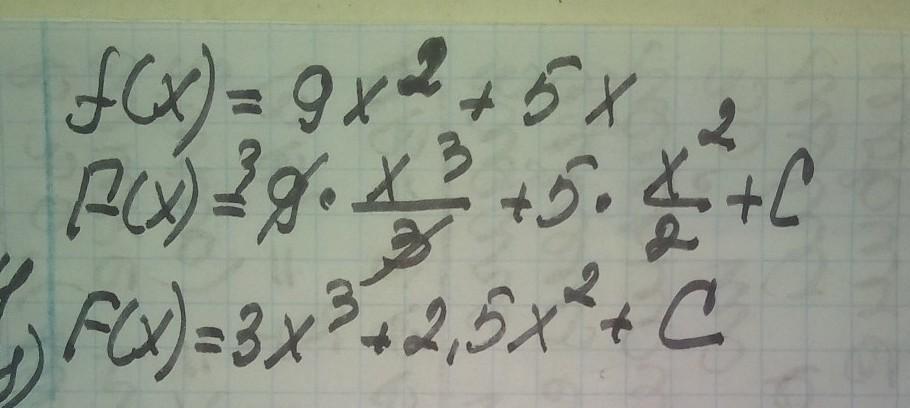 f(x) = 9x² + 5x
F(x) = ³9 · x³/3 + 5 · x²/2 + C
F(x) = 3x³ + 2,5x² + C